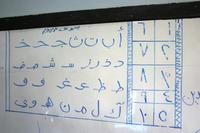 أ ب ت ث ج ح خ
د ذ ر ز س ش ص ض
ط ظ ع غ ف ق
ك ل م ن ه و ي
١ ٦
٢ ٧
٣ ٨
٤ ٩
٥ ١٠